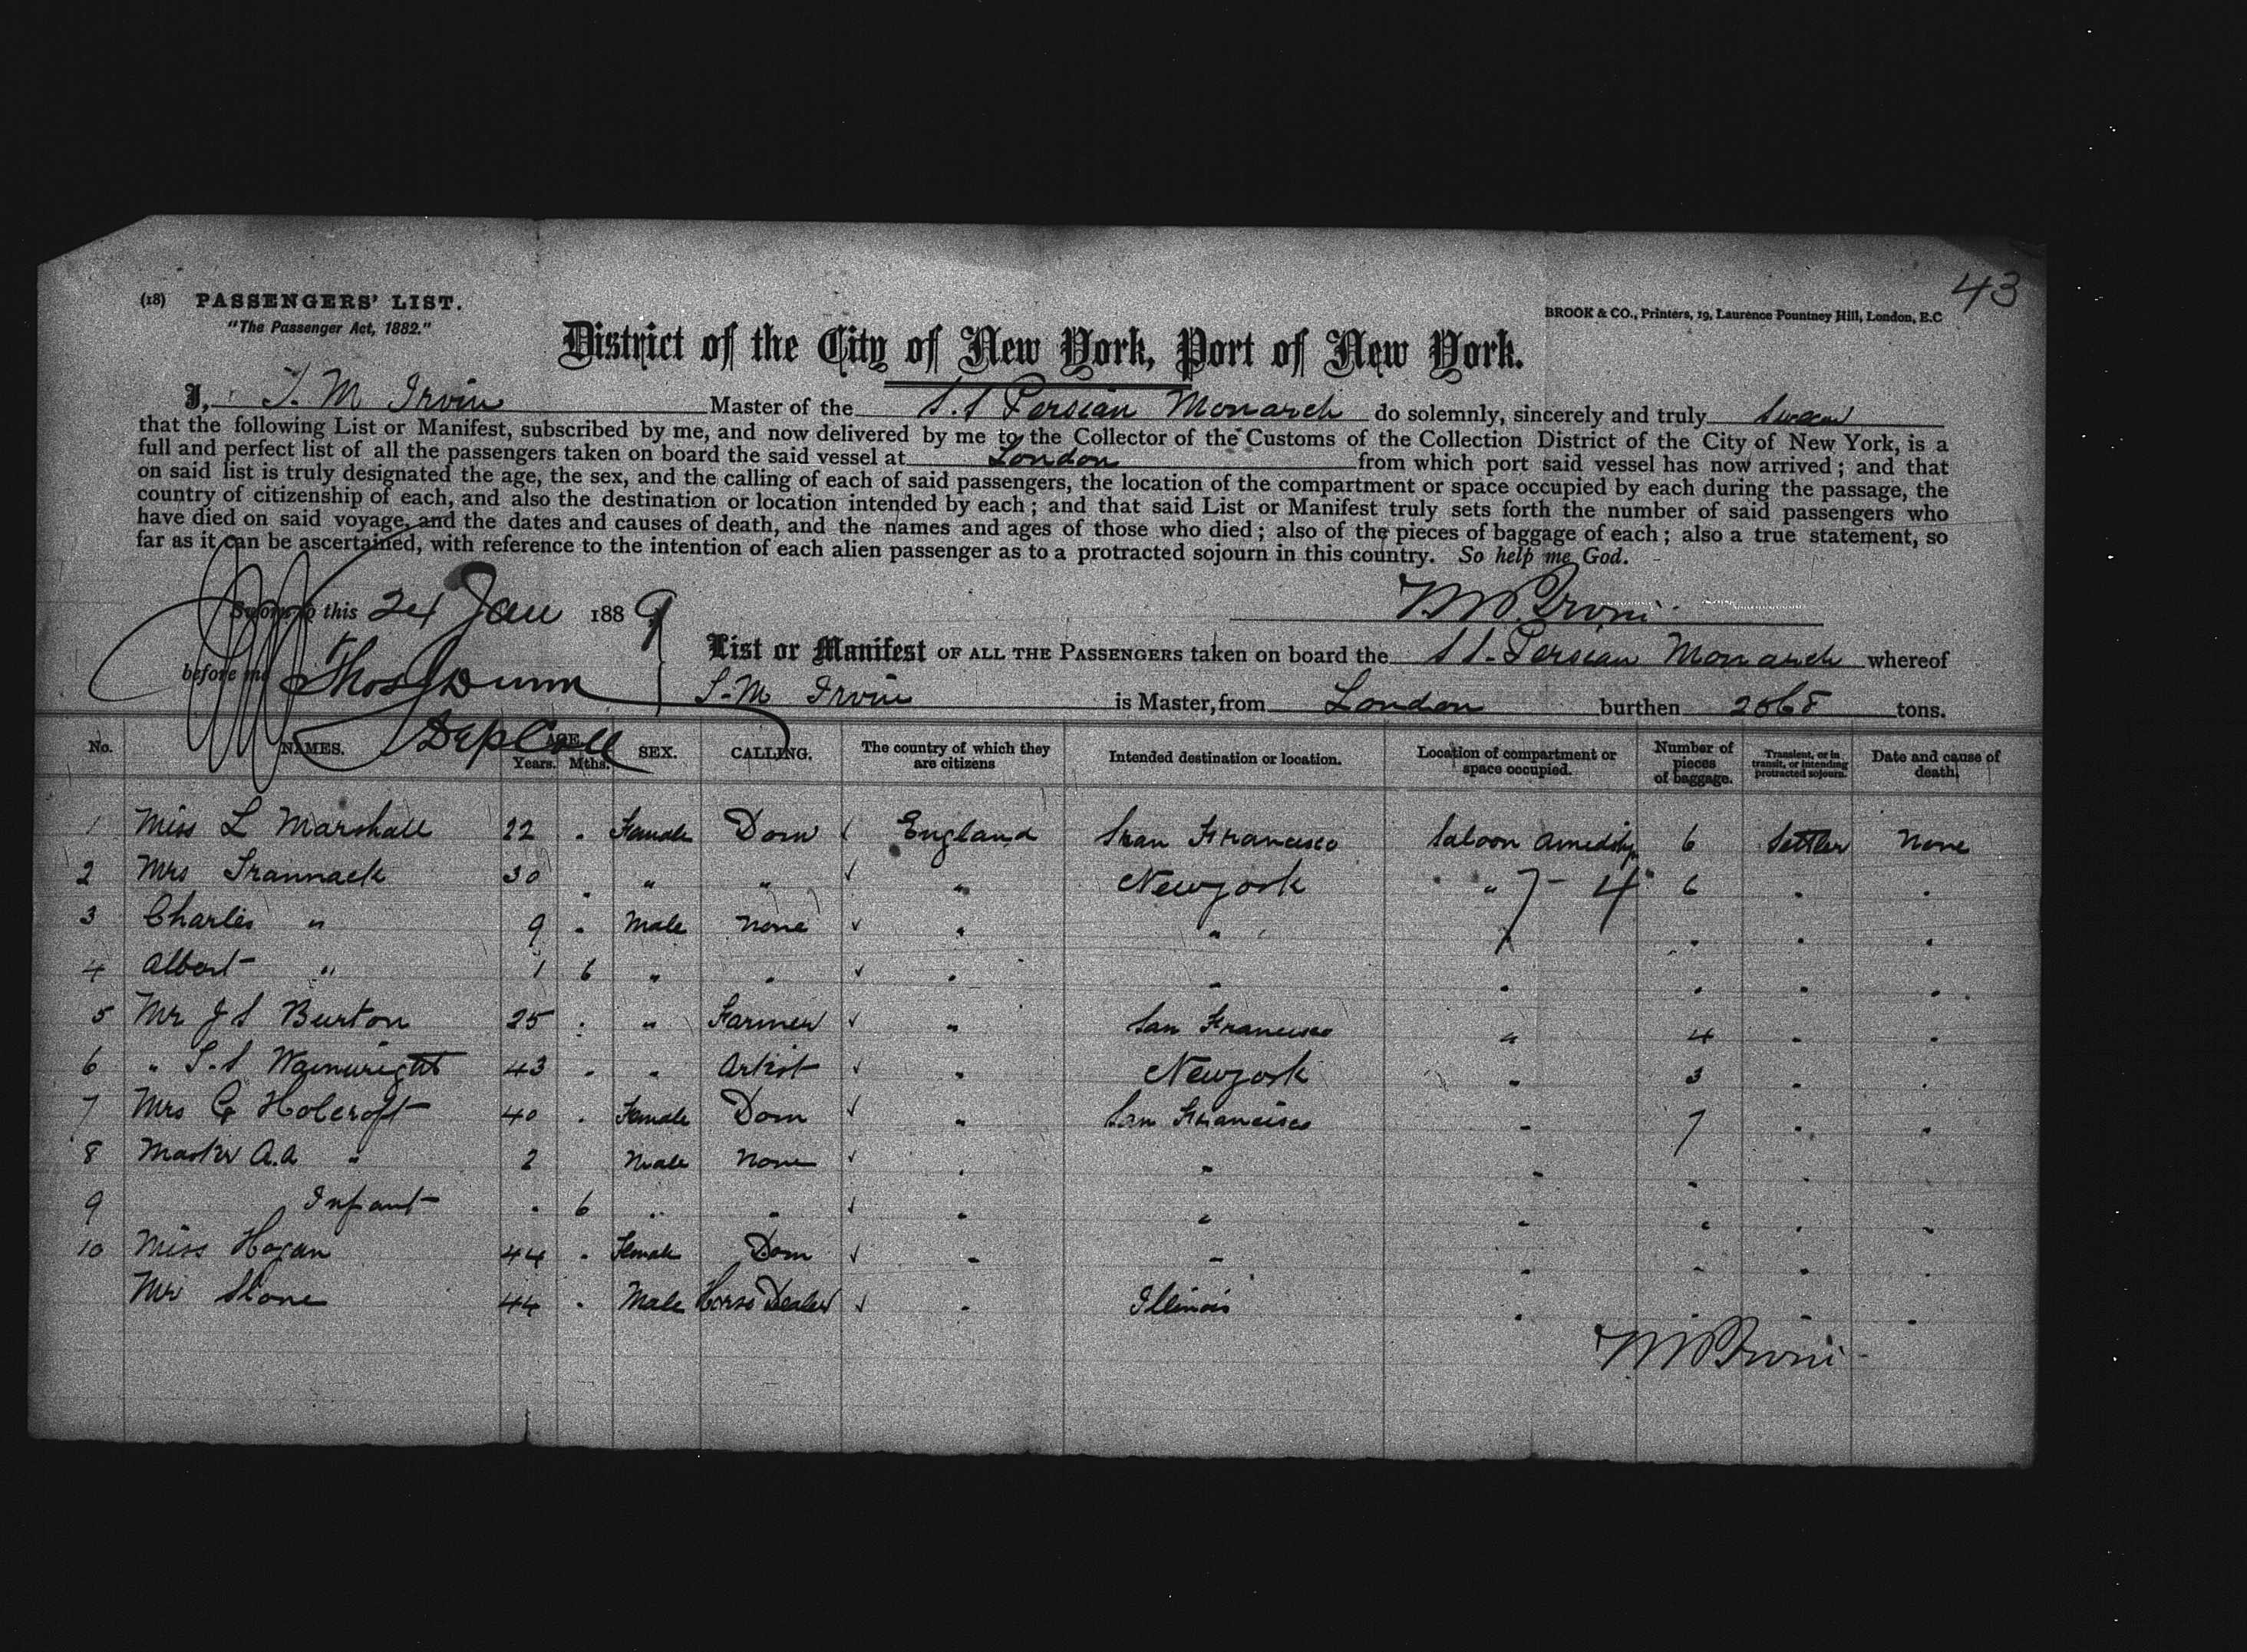 43
(18) PASSENGERS' LIST.
"The Passenger Act, 1882."
BROOK & CO., Printers, 19, Laurence Pountney Hill, London, E.C
District of the City of New York, Port of New York.
I, T. M Irvin Master of the S.S Persian Monarch do solemnly, sincerely and truly Swear
that the following List or Manifest, subscribed by me, and now delivered by me to the Collector of the Customs of the Collection District of the City of New York, is a
full and perfect list of all the passengers taken on board the said vessel at London from which port said vessel has now arrived; and that
on said list is truly designated the age, the sex, and the calling of each of said passengers, the location of the compartment or space occupied by each during the passage, the
country of citizenship of each, and also the destination or location intended by each; and that said List or Manifest truly sets forth the number of said passengers who
have died on said voyage, and the dates and causes of death, and the names and ages of those who died; also of the pieces of baggage of each; also a true statement, so
far as it can be ascertained, with reference to the intention of each alien passenger as to a protracted sojourn in this country. So help me God.
Sworn to this 24 Jan 1889
before me Thos Dunn
Dep Coll
List or Manifest OF ALL THE PASSENGERS taken on board the S S. Persian Monarch whereof
T. M Irvin is Master, from London burthen 2868 tons.
No. NAMES. AGE Years. Mths. SEX. CALLING. The country of which they are citizens Intended destination or location. Location of compartment or space occupied. Number of pieces of baggage. Transient, or in transit, or intending protracted sojourn. Date and cause of death.
1 Miss L Marshall 22 . Female Dom England San Francisco Saloon Amidship 6 Settler None
2 Mrs Trannack 30 . " " " Newyork " 7 - 4 6 . .
3 Charles " 9 . Male None " " " . . .
4 Albert " 1 6 " " " " " . . .
5 Mr J S Burton 25 . " Farmer " San Francisco " 4 . .
6 " T. S Wainwright 43 . " Artist " Newyork " 3 . .
7 Mrs G Holcroft 40 . Female Dom " San Francisco " 7 . .
8 Master A.A " 2 Male None " " " . . .
9 Infant . 6 " " " " " . . .
10 Miss Hogan 44 . Female Dom " " " . . .
Mr Stone 44 . Male Horse Dealer " Illinois " . . .